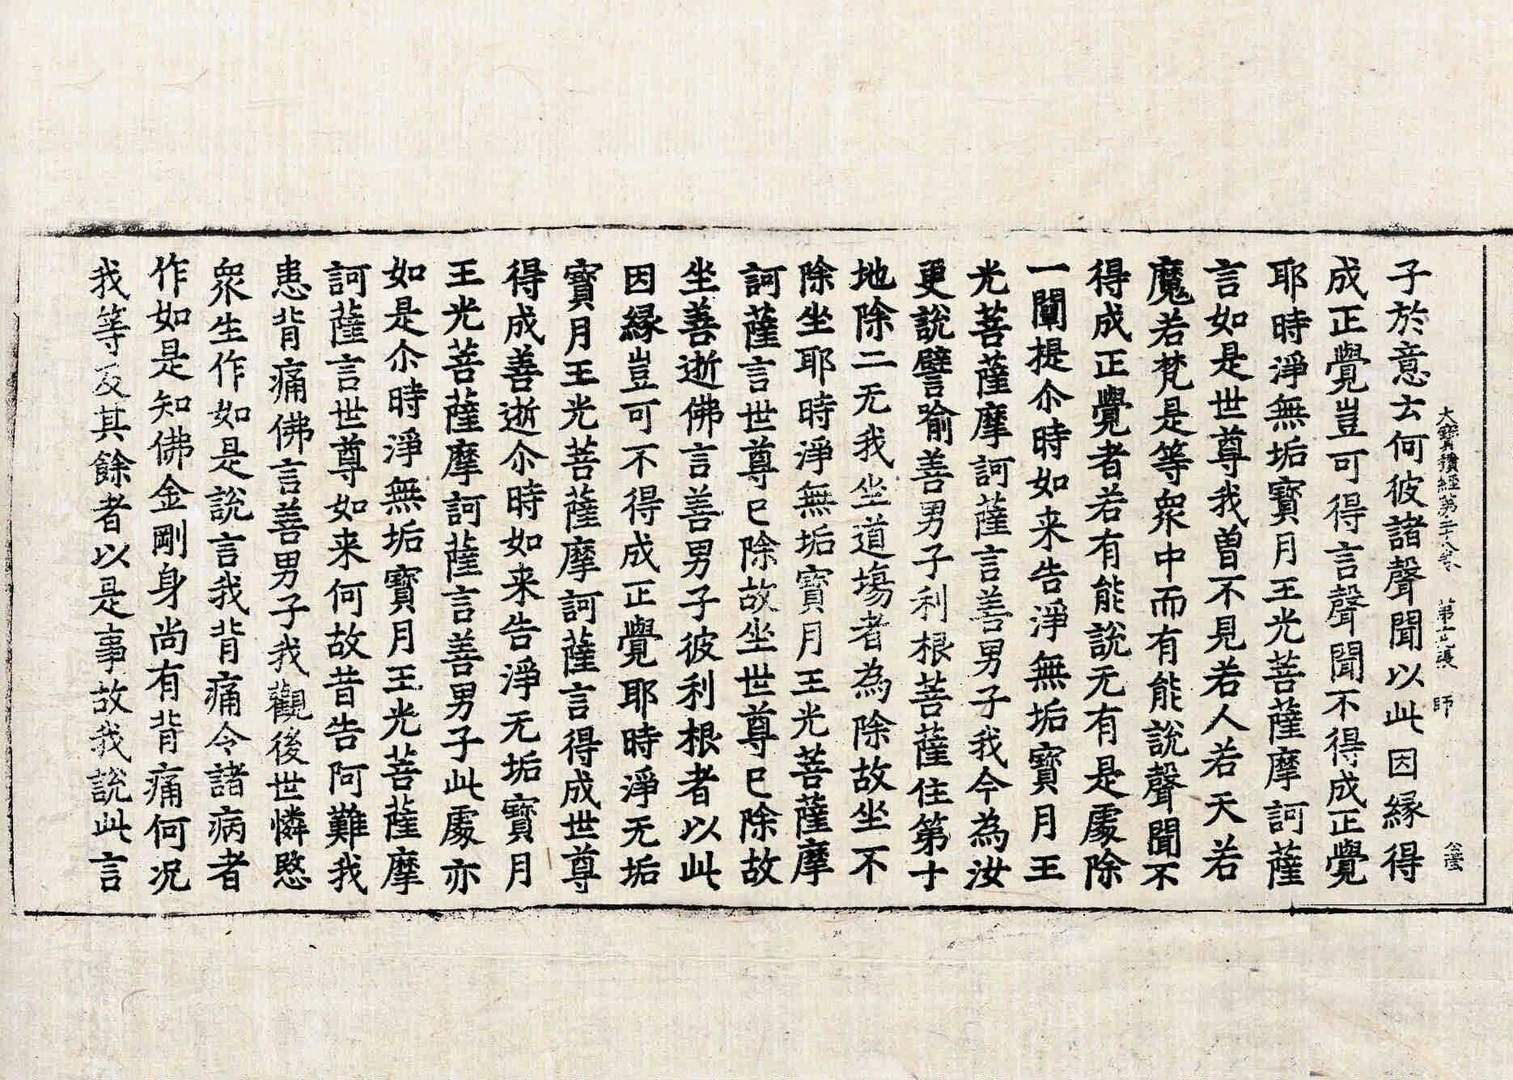 大寶積經第二十八卷 第十六張 師
子於意云何彼諸聲聞以此因緣得
成正覺豈可得言聲聞不得成正覺
耶時淨無垢寶月王光菩薩摩訶薩
言如是世尊我曽不見若人若天若
魔若梵是等衆中而有能說聲聞不
得成正覺者若有能說无有是處除
一闡提尒時如来告淨無垢寶月王
光菩薩摩訶薩言善男子我今為汝
更說譬喻善男子利根菩薩住第十
地除二无我坐道塲者為除故坐不
除坐耶時淨無垢寶月王光菩薩摩
訶薩言世尊已除故坐世尊已除故
坐善逝佛言善男子彼利根者以此
因緣豈可不得成正覺耶時淨无垢
寶月王光菩薩摩訶薩言得成世尊
得成善逝尒時如来告淨无垢寶月
王光菩薩摩訶薩言善男子此處亦
如是尒時淨無垢寶月王光菩薩摩
訶薩言世尊如来何故昔告阿難我
患背痛佛言善男子我觀後世憐愍
衆生作如是說言我背痛令諸病者
作如是知佛金剛身尚有背痛何况
我等及其餘者以是事故我說此言